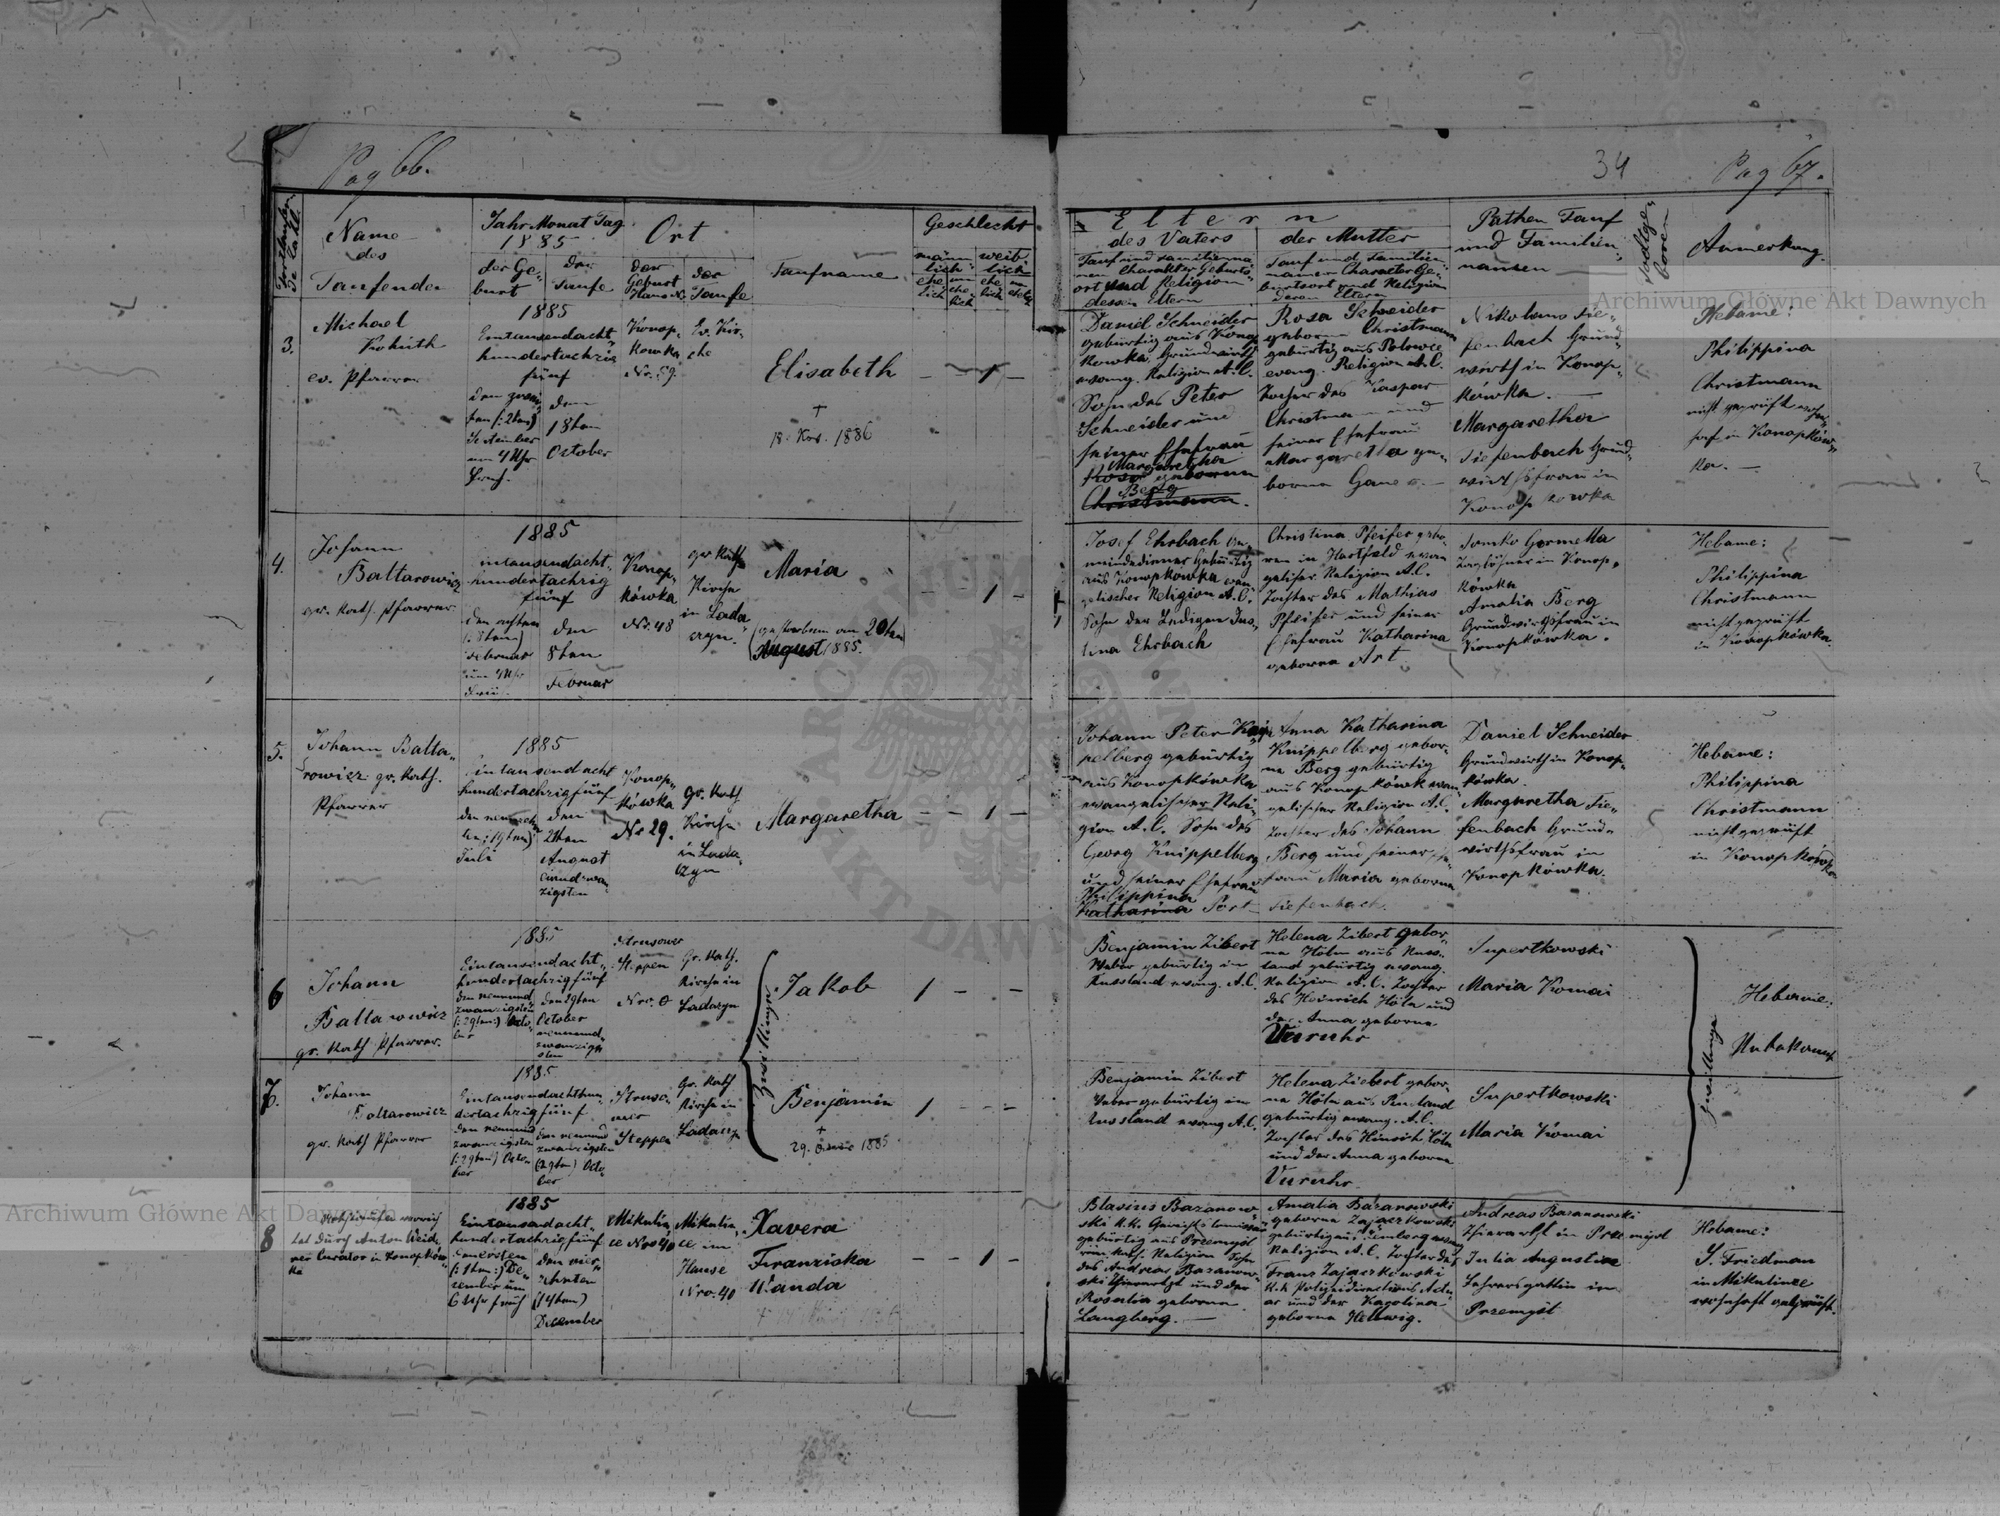 Pag 66.
34
Pag 67.
Name
des
Taufenden
Jahr Monat Tag
1885
der Ge-
burt
der
Taufe
Ort
der
Geburt
Haus Nr
der
Taufe
Taufname
Geschlecht
männ-
lich
weib-
lich
ehe-
lich
un-
ehe-
lich
ehe-
lich
Eltern
des Vaters
der Mutter
Tauf und Familienna-
men Charakter Geburts-
ort und Religion
dessen Eltern
Tauf und Familien-
namen Character Ge-
burtsort und Religion
deren Eltern
Pathen Tauf
und Familien-
namen
Todtge-
boren
Anmerkung.
Archiwum Główne Akt Dawnych
3.
Michael
Kohuth
ev. Pfarrer
1885
Eintausendacht-
hundertachzig
fünf
den zwei-
ten (:2ten)
September
um 4 Uhr
Früh.
den
18ten
October
Konop-
kowka
Nr. 59.
Ev. Kir-
che
Elisabeth
+
18. Nov. 1886
1
Daniel Schneider
gebürtig aus Konop-
kowka, Grundwirth
evang. Religion A.C.
Sohn des Peter
Schneider und
seiner Ehefrau
Margaretha
Rosa geborenen
Berg
Christmann.
Rosa Schneider
geborne Christmann
gebürtig aus Polowce
evang. Religion A.C.
Tochter des Kaspar
Christmann und
seiner Ehefrau
Margaretha ge-
borne
Nikolaus Tie-
fenbach Grund-
wirth in Konop-
kówka.
Margaretha
Tiefenbach Grund-
wirthsfrau in
Konopkowka
Hebame:
Philippina
Christmann
nicht geprüft
in Konopków-
ka.
4.
Johann
Baltarowicz
gr. Kath. Pfarrer
1885
Eintausendacht-
hundertachzig
fünf
den achten
(:8ten)
Februar
um 4 Uhr
Früh.
den
8ten
Februar
Konop-
kówka
Nr. 48
gr Kath
Kirche
in Lada-
czyn.
Maria
(gestorben am 20ten
August 1885.
1
Josef Ehrbach Ge-
meindediener Gebürtig
aus Konopkowka evan-
gelischer Religion A.C.
Sohn der Ledigen Jus-
tina Ehrbach
Christina Pfeifer gebo-
ren in Hartfeld evan
gelischer Religion A.C.
Tochter des Mathias
Pfeifer und seiner
Ehefrau Katharina
geborne Art
Tomko Garmella
Taglöhner in Konop-
kówka
Amalia Berg
Grundwirthsfrau in
Konopkówka.
Hebame:
Philippina
Christmann
nicht geprüft
in Konopkówka.
5.
Johann Balta-
rowicz gr. Kath.
Pfarrer
1885
Eintausendacht
hundertachzigfünf
den neunzehn-
ten (:19ten)
Juli
den
21ten
August
einundzwan-
zigsten
Konop-
kówka
Nr 29.
Gr. Kath
Kirche
in Lada-
czyn
Margaretha
1
Johann Peter Knip-
pelberg gebürtig
aus Konopkówka
evangelischer Reli-
gion A.C. Sohn des
Georg Knippelberg
und seiner Ehefrau
Philippina
Katharina Port
Anna Katharina
Knippelberg gebor-
ne Berg gebürtig
aus Konopkówka evan
gelischer Religion A.C.
Tochter des Johann
Berg und seiner Ehe-
frau Maria geborne
Tiefenbach.
Daniel Schneider
Grundwirth in Konop-
kówka.
Margaretha Tie-
fenbach Grund-
wirthsfrau in
Konopkówka.
Hebame:
Philippina
Christmann
nicht geprüft
in Konopkówka
6
Johann
Baltarowicz
gr. Kath Pfarrer.
1885
Eintausendacht-
hundertachzigfünf
den neunund
zwanzigsten
(:29ten:) Octo-
ber
den 29ten
October
neunund-
zwanzig-
sten
Strusower
Steppen
Nro. 0
Gr. Kath.
Kirche in
Ladaczyn
Zwillinge
Jakob
1
Benjamin Zibert
Weber gebürtig in
Russland evang. A.C.
Helena Zibert gebor-
ne Höln aus Russ-
land gebürtig evang.
Religion A.C. Tochter
des Heinrich Höln und
der Anna geborne
Vuruhr
Supertkowski
Maria Komai
Zwillinge
Hebame:
Unbekannt
7.
Johann
Baltarowicz
gr. Kath Pfarrer
1885
Eintausendachthun-
dertachzigfünf
den neunund
zwanzigsten
(:29ten) Octo-
ber
den neunund
zwanzigsten
(29ten) Octo-
ber
Struso-
wer
Steppen
Gr. Kath
Kirche in
Ladaczyn
Benjamin
+
29. 1885
1
Benjamin Zibert
Weber gebürtig in
Russland evang A.C.
Helena Ziebert gebor-
ne Höln aus Russland
gebürtig evang. A.C.
Tochter des Heinrich Höln
und der Anna geborne
Vuruhr.
Supertkowski
Maria Komai
8
Nothtaufe verrich
tet durch Anton Weid-
ner Curator in Konopków-
ka
1885
Eintausendacht-
hundertachzigfünf
den ersten
(:1ten:) De-
zember um
6 Uhr früh
den vier-
zehnten
(14ten)
Dezember
Mikulin-
ce Nro 40
Mikulin-
ce im
Hause
Nro. 40
Xavera
Franziska
Wanda
1
Blasius Bazanow-
ski k.k. Gerichts
gebürtig aus Przemysl
röm. kath. Religion Sohn
des Andreas Bazanow-
ski Thierarzt und der
Rosalia geborne
Langberg.
Amalia Bazanowski
geborne Zajaczkowski
gebürtig in Lemberg evang
Religion A.C. Tochter des
Franz Zajaczkowski
k.k. Polizeidirections Actu-
ar und der Karolina
geborne Hellwig.
Andreas Bazanowski
Thierarzt in Przemysl
Julia Augustine
Lehrersgattin in
Przemysl
Hebame:
S. Friedman
in Mikulince
wohnhaft geprüft.
Archiwum Główne Akt Dawnych